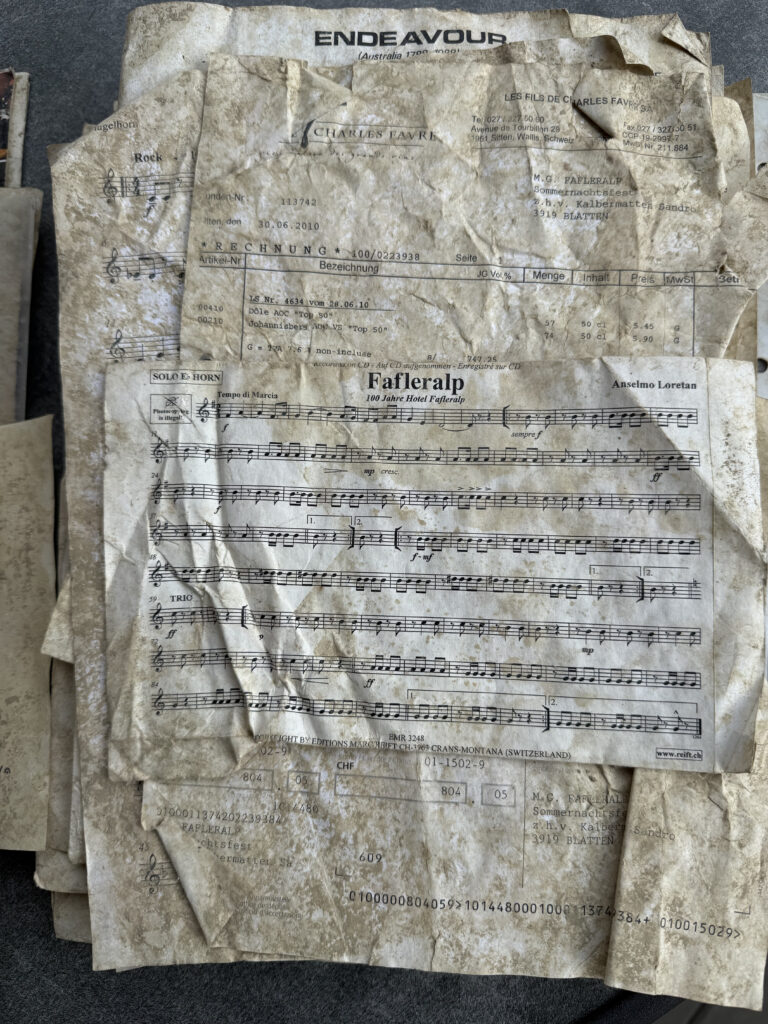 ENDEAVOUR
(Australia 1788-1988)
LES FILS DE CHARLES FAVRE SA
CHARLES FAVRE
Tel 027 / 327 50 60
Avenue de Tourbillon 29
1951 Sitten, Wallis, Schweiz
Fax 027 / 327 50 51
CCP 19-2997-7
MwSt Nr. 211 884
ügelhorn
Rock -
M.G. FAFLERALP
Sommernachtsfest
z.h.v. Kalbermatten Sandro
3919 BLATTEN
unden-Nr. 113742
itten, den 30.06.2010
* RECHNUNG * 100/0223938 Seite 1
Artikel-Nr Bezeichnung JG Vol.% Menge Inhalt Preis MwSt Betr
LS Nr. 4634 vom 28.06.10
00410 Dôle AOC "Top 50" 57 50 cl 5.45 G
00210 Johannisberg AOC VS "Top 50" 74 50 cl 5.90 G
G = TVA 7.6 % non-incluse 747.25
Recorded on CD - Auf CD aufgenommen - Enregistré sur CD
SOLO Eb HORN
Fafleralp
Anselmo Loretan
100 Jahre Hotel Fafleralp
Photocopying is illegal!
Tempo di Marcia
f
sempre f
mp cresc.
ff
24
f
1. 2.
f-mf
1. 2.
59
TRIO
ff
p
mp
ff
1. 2.
EMR 3248
COPYRIGHT BY EDITIONS MARC REIFT CH-3963 CRANS-MONTANA (SWITZERLAND)
www.reift.ch
CHF
01-1502-9
804 05
804 05
M.G. FAFLERALP
Sommernachtsfest
z.h.v. Kalber Sandro
3919 BLATTEN
FAFLERALP
chtsfest
bermatten Sa
609